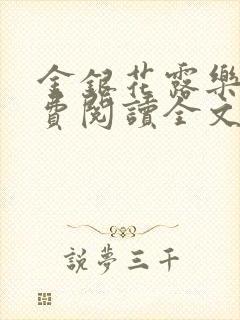 金銀花露樂
費閱讀全文
說夢三千